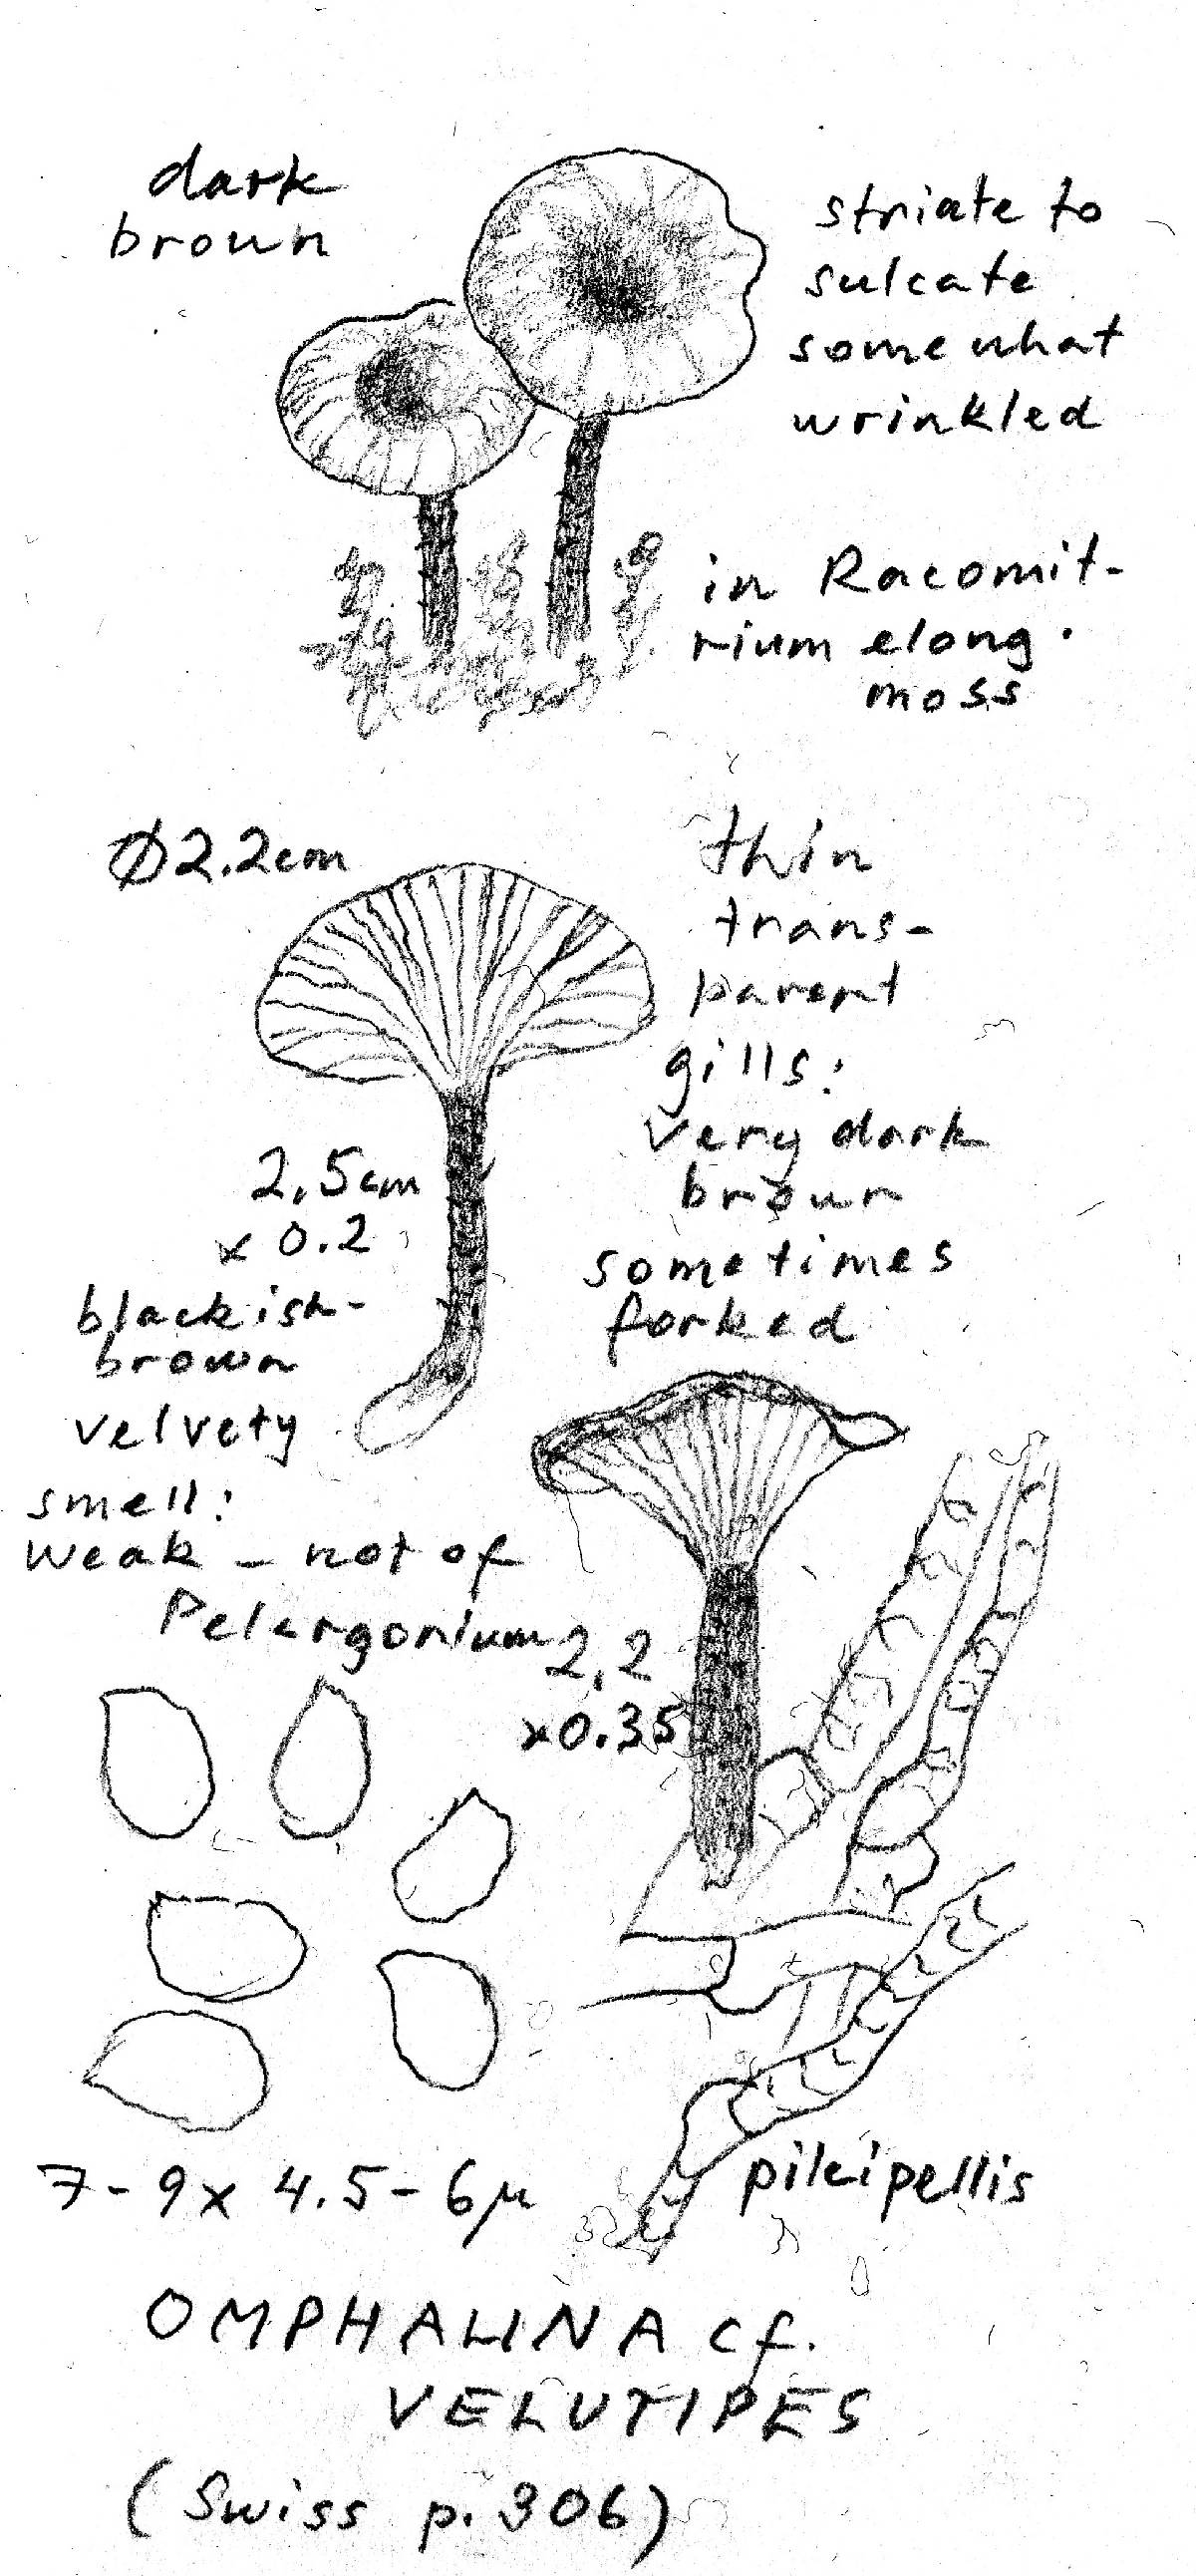 dark
brown
striate to
sulcate
somewhat
wrinkled
in Racomit-
rium elong.
moss
Ø2.2cm
thin
trans-
parent
gills:
very dark
brown
sometimes
forked
2,5cm
x 0.2
blackish-
brown
velvety
smell:
weak - not of
Pelergonium
2,2
x0.35
7-9x 4.5-6µ
pileipellis
OMPHALINA cf.
VELUTIPES
(Swiss p. 306)